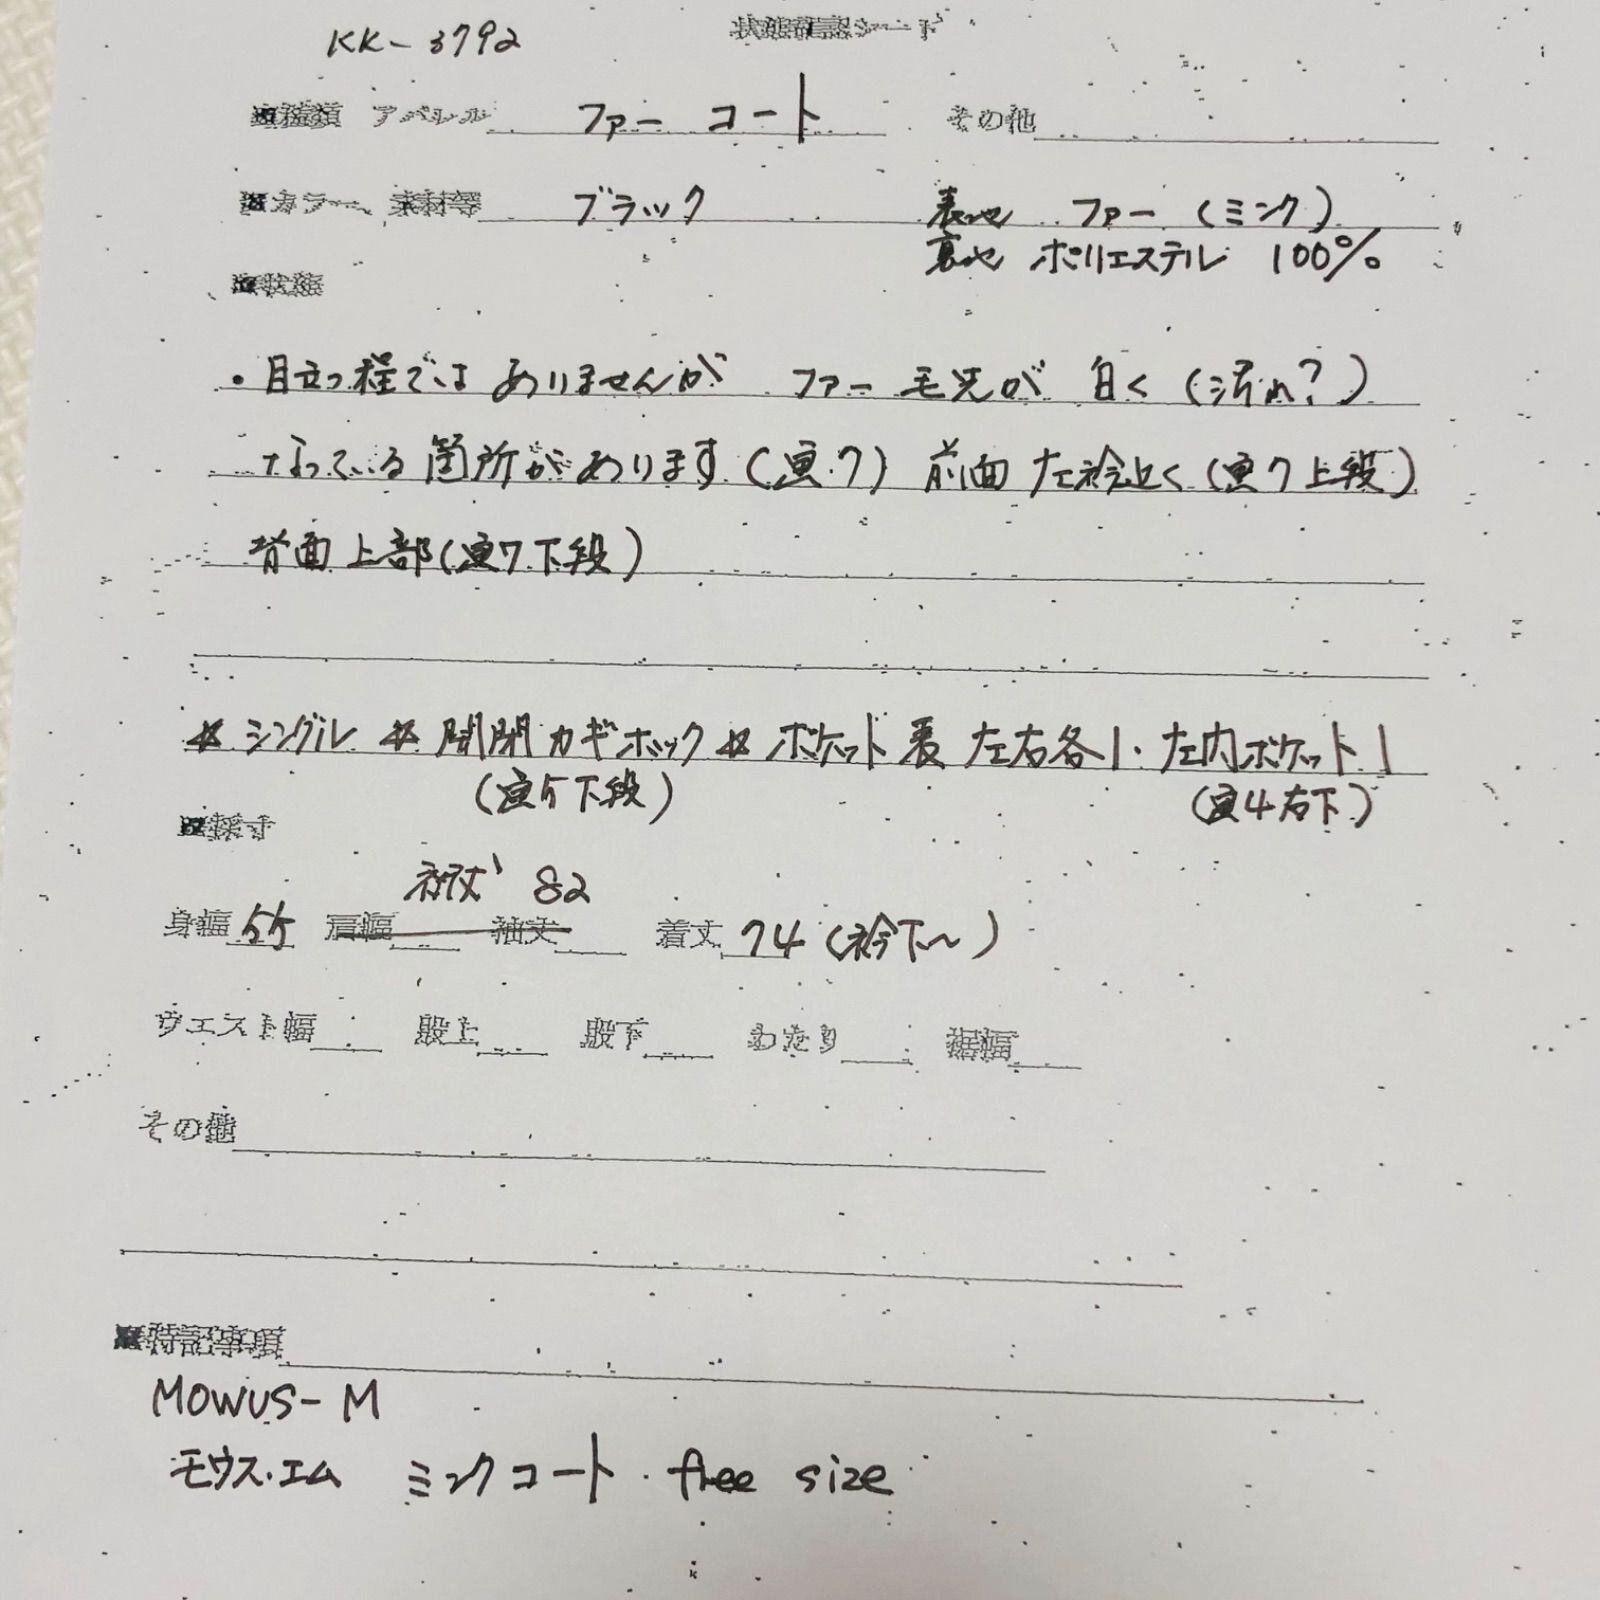 KK-3792
状態確認シート
■種類 アパレル ファーコート その他
■カラー、素材等 ブラック 表地 ファー(ミンク)
裏地 ポリエステル 100%
■状態
・目立つ程ではありませんが ファー毛先が 白く(汚れ?)
なっている箇所があります(画.7) 前面 左衿近く(画7上段)
背面上部(画7下段)
☆シングル ☆開閉カギホック☆ポケット表 左右各1・左内ポケット1
(画5下段) (画4右下)
■採寸
裄丈 82
身幅 55 肩幅 袖丈 着丈 74(衿下〜)
ウエスト幅 股上 股下 わたり 裾幅
その他
■特記事項
MOWUS-M
モウス.エム ミンクコート.free size